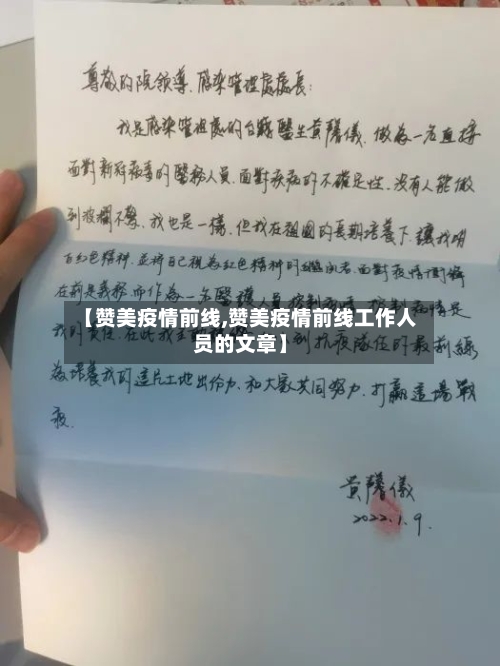 尊敬的院領導、感染管理處處長:
我是感染管理處的台籍醫生黃馨儀,做為一名直接
面對新冠病毒的醫務人員,面對疾病的不確定性,沒有人能做
到波瀾不驚,我也是一樣,但我在祖國的長期培養下,讓我明
白紅色精神,並將自己視為紅色精神的
在前是義務,而作為一名醫護人員
【赞美疫情前线,赞美疫情前线工作人
员的文章】
我的責任,在此我 到抗疫隊伍的最前線
為培養我的這片土地出份力,和大家共同努力,打贏這場戰
疫.
黃馨儀
2022.1.9.